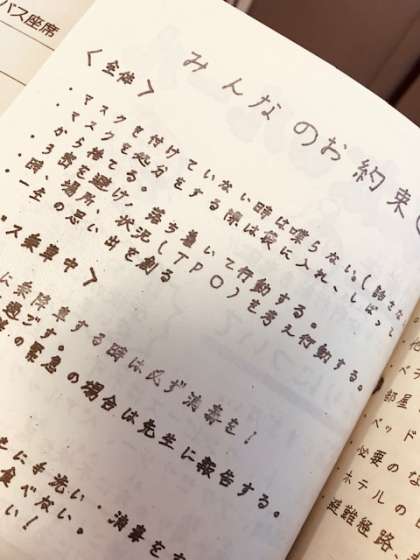 バス座席
みんなのお約束
＜全体＞
・マスクを付けていない時は喋らない。(話さな
・マスクを処分をする際は袋に入れ、しばって
から捨てる。
・3密を避け、落ち着いて行動する。
・時、場所、状況(TPO)を考え行動する。
・一生の思い出を創る
ス乗車中＞
に乗降車する際は必ず消毒を!
過ごす。
の緊急の場合は先生に報告する。
に手洗い・消毒を
食べない。
い!
部屋
ベッド
必要のな
ホテルの
避難経路、